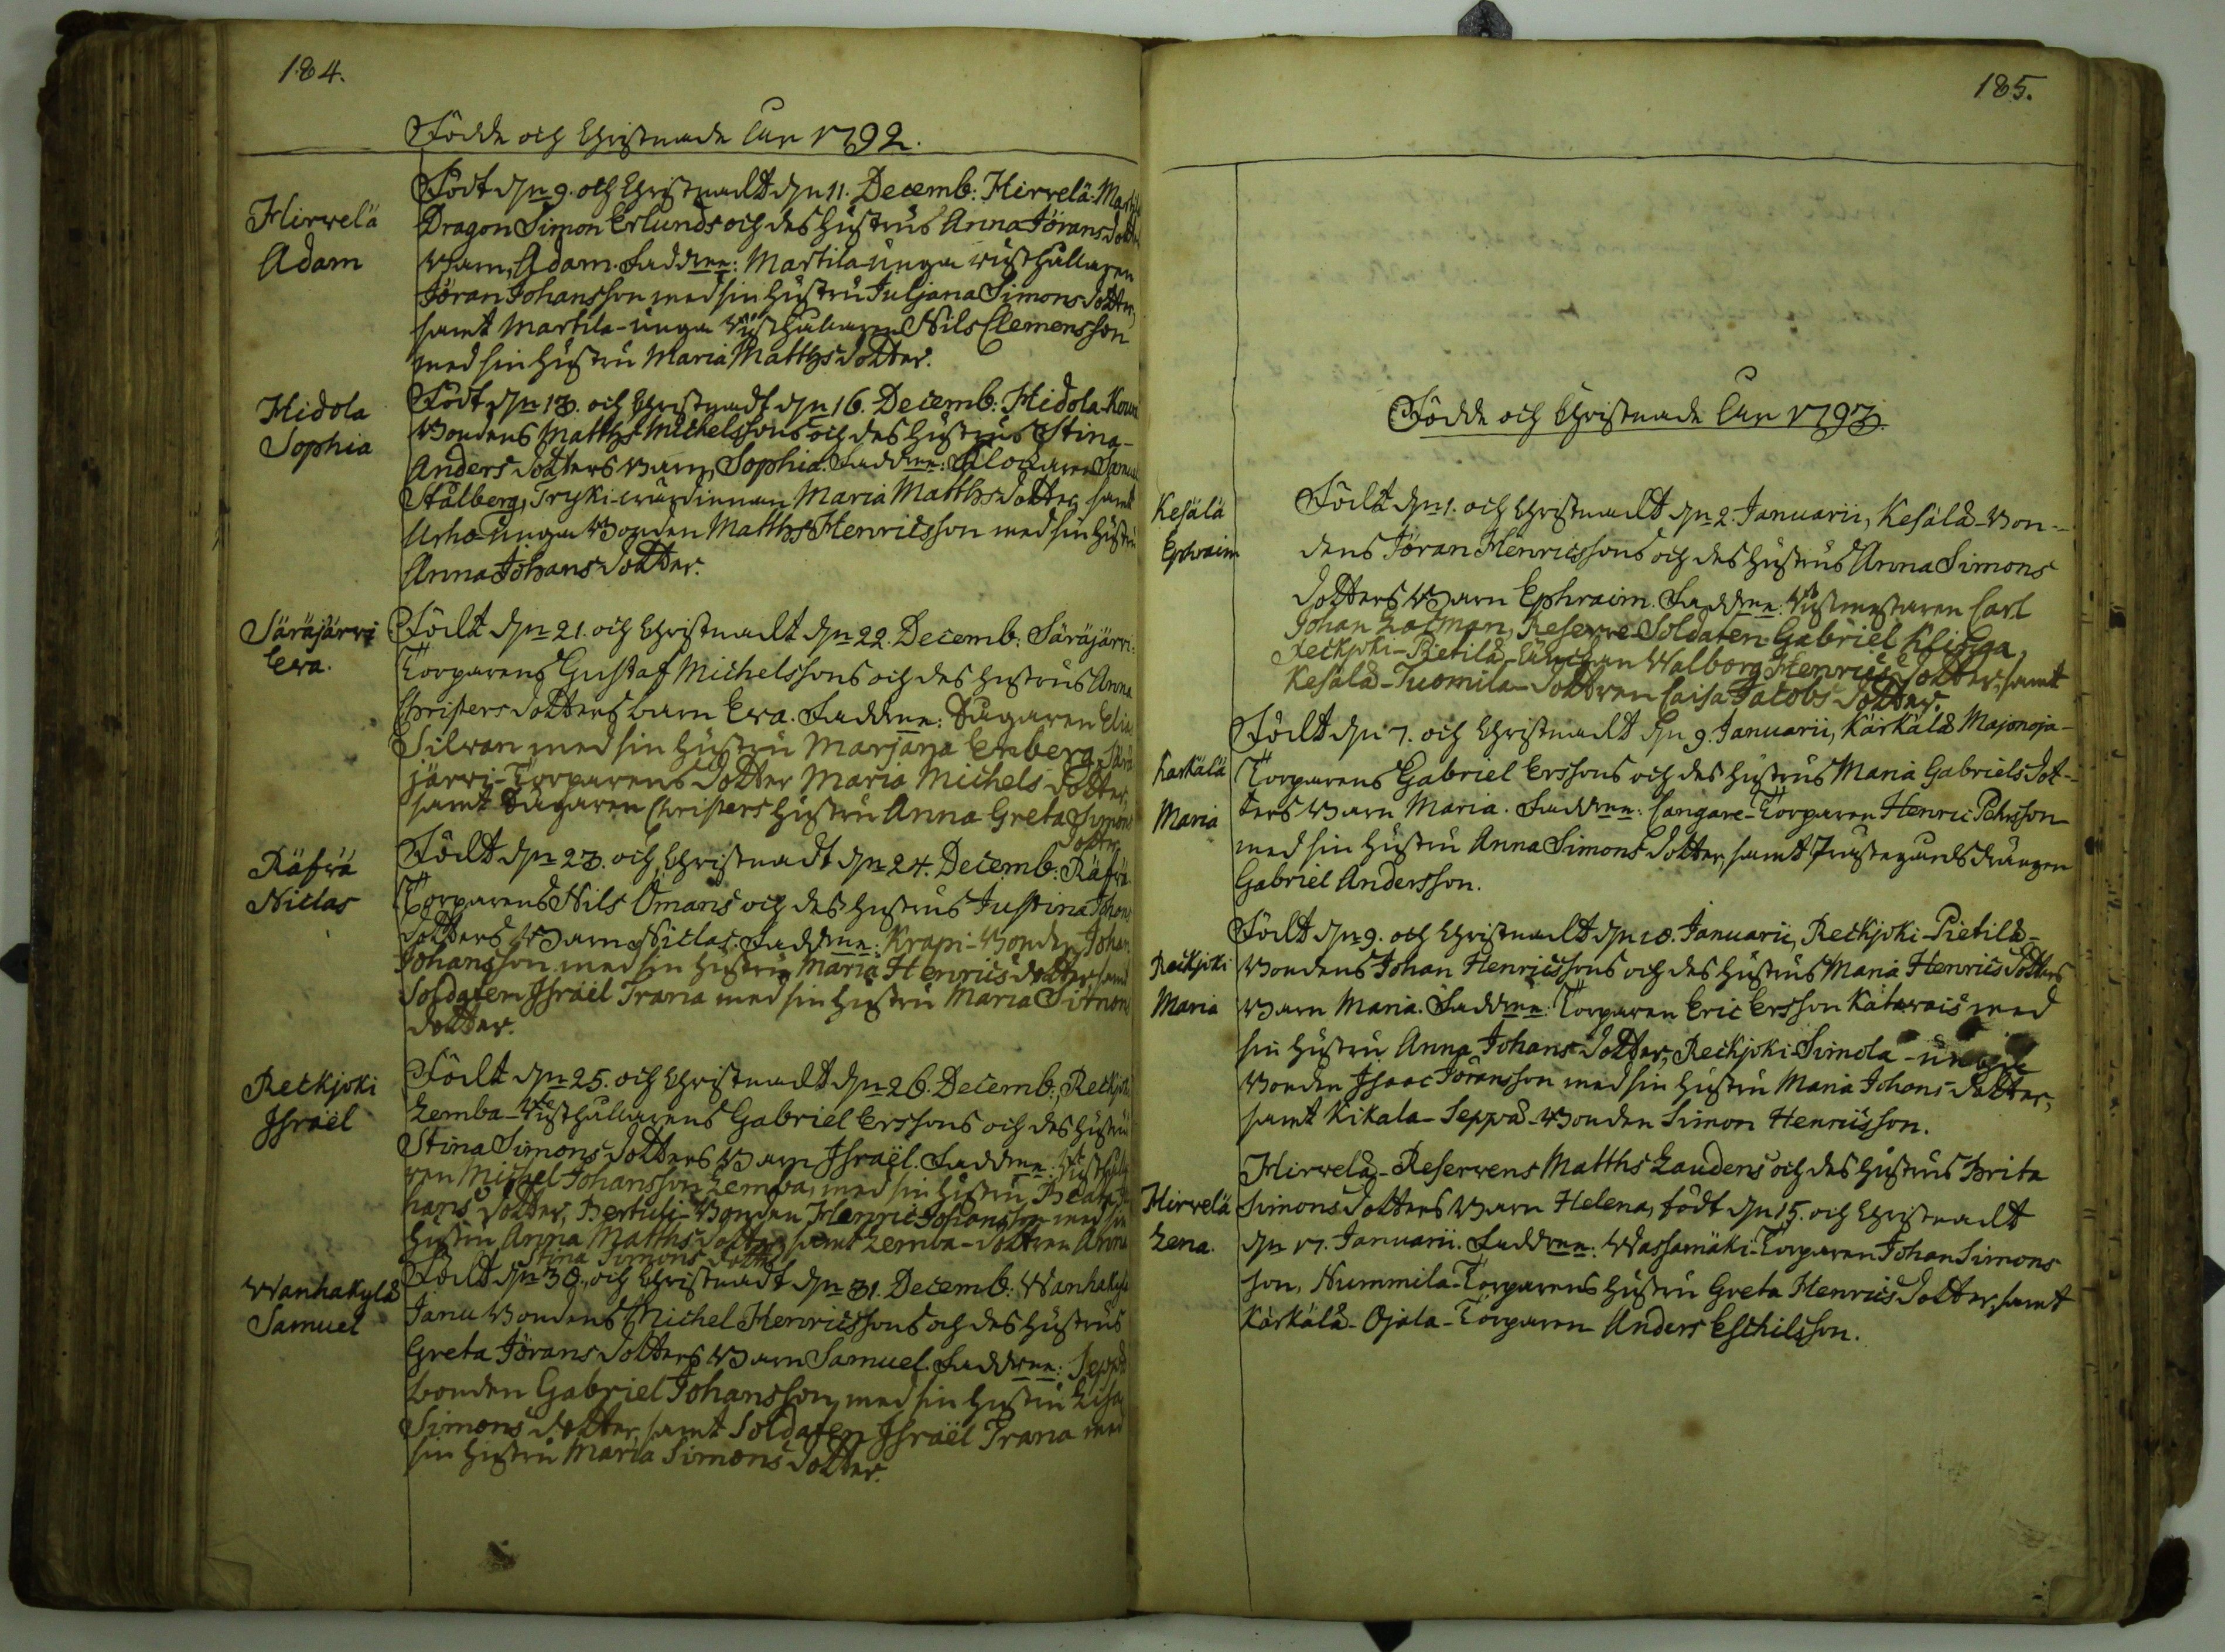 184.
Födde och Christnade Åhr 1792.
Hirvelä
Adam
Född dn 9. och Christnadt dn 11. Decemb: Hirvelä-Martila
Dragon Simon Erlunds och des Hustrus Anna Jörans dotters
Barn, Adam. Faddrar: Martila unga rusthållaren
Jöran Johansson med sin Hustru Juljana Simons dotter,
samt Martila-unga Rusthållaren Nils Clemensson
med sin Hustru Maria Matths dotter.
Hidola
Sophia
Född dn 13. och Christnadt dn 16. Decemb: Hidola-
Bondens Matths Michelssons och des Hustrus Stina
Anders dotters Barn, Sophia. Faddrar: Klockaren
Stålberg, Tryki-wärdinnan Maria Matths dotter, samt
Urho-unga Bonden Matths Henricsson med sin Hustru
Anna Johans dotter.
Säräjärvi
Eva.
Födt dn 21. och Christnadt dn 22. Decemb: Säräjärvi
Torparens Gustaf Michelssons och des Hustrus Anna
Christers dotters barn Eva. Faddrar: Sågaren
Silvan med sin Hustru Marjana Enberg, Särä-
järvi-Torparens dotter Maria Michels dotter,
samt Sågaren Christers Hustru Anna Greta Simons
dotter.
Räfvä
Niclas
Födt dn 23. och Christnadt dn 24. Decemb: Räfvä
Torparens Nils Ömans och des Hustrus Justina Johans
dotters Barn Niclas. Faddrar: Krapi-Bonden Johan
Johansson med sin Hustru Maria Henrics dotter, samt
Soldaten Israël Trana med sin Hustru Maria Simons
dotter.
Reckjoki
Israël
Födt dn 25. och Christnadt dn 26. Decemb: Reckjoki
Lemba-Rusthållarens Gabriel Erssons och des Hustrus
Stina Simons dotters Barn Israël. Faddrar: Rusthålla-
ren Michel Johansson Lemba, med sin Hustru Beata Jo-
hans dotter, Bertuli-Bonden Henric Johansson med sin
Hustru Anna Matths dotter, samt Lemba-dottren
Stina Simons dotter.
Wanhakylä
Samuel
Födt dn 30. och Christnadt dn 31. Decemb: Wanhakylä
Janu Bondens Michel Henricssons och des Hustrus
Greta Jörans dotters Barn Samuel. Faddrar: Seppä
bonden Gabriel Johansson, med sin Hustru Lisa
Simons dotter, samt Soldaten Israël Trana med
sin Hustru Maria Simons dotter.
185.
Födde och Christnade Åhr 1793.
Kesälä
Ephraim
Födt dn 1. och Christnadt dn 2. Januarii, Kesälä-Bon-
dens Jöran Henricssons och des Hustrus Anna Simons
dotters Barn Ephraim. Faddrar: Rustmästaren Carl
Johan Lagman, Reserve-Soldaten Gabriel Klinga,
Reckjoki-Pietilä-änckan Walborg Henrics dotter, samt
Kesälä-Tuomila-dottren Caisa Jacobs dotter.
Karkälä
Maria
Födt dn 7. och Christnadt dn 9. Januarii, Kärkälä Majonoja-
Torparens Gabriel Erssons och des Hustrus Maria Gabriels dot-
ters Barn Maria. Faddrar: Cangare-Torparen Henric Pehrsson
med sin Hustru Anna Simons dotter, samt Prästegårds drängen
Gabriel Andersson.
Reckjoki
Maria
Födt dn 9. och Christnadt dn 10. Januarii, Reckjoki-Pietilä-
Bondens Johan Henricssons och des Hustrus Maria Henrics dotters
Barn Maria. Faddrar: Torparen Eric Ersson Kätarais med
sin Hustru Anna Johans dotter, Reckjoki-Simola-unga
Bonden Isaac Jöransson med sin Hustru Maria Johans-dotter,
samt Kikala-Seppä-Bonden Simon Henricsson.
Hirvelä
Lena.
Hirvelä-Reservens Matths Laudens och des Hustrus Brita
Simons dotters Barn Helena, födt dn 15. och Christnadt
dn 17. Januarii. Faddrar: Wassamäki-Torparen Johan Simons
son, Nummila-Torparens Hustru Greta Henrics dotter, samt
Kärkälä-Ojala-Torparen Anders Eschilsson.